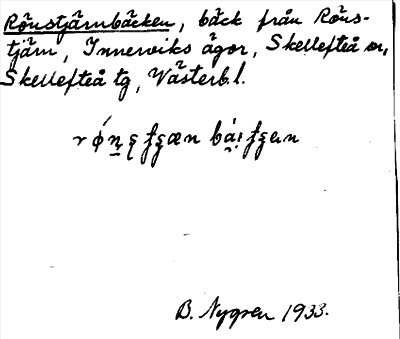 Rönstjärnbäcken, bäck från Röns-
tjärn, Innerviks ägor, Skellefteå sn,
Skellefteå tg, Västerb.l.
B. Nygren 1933.